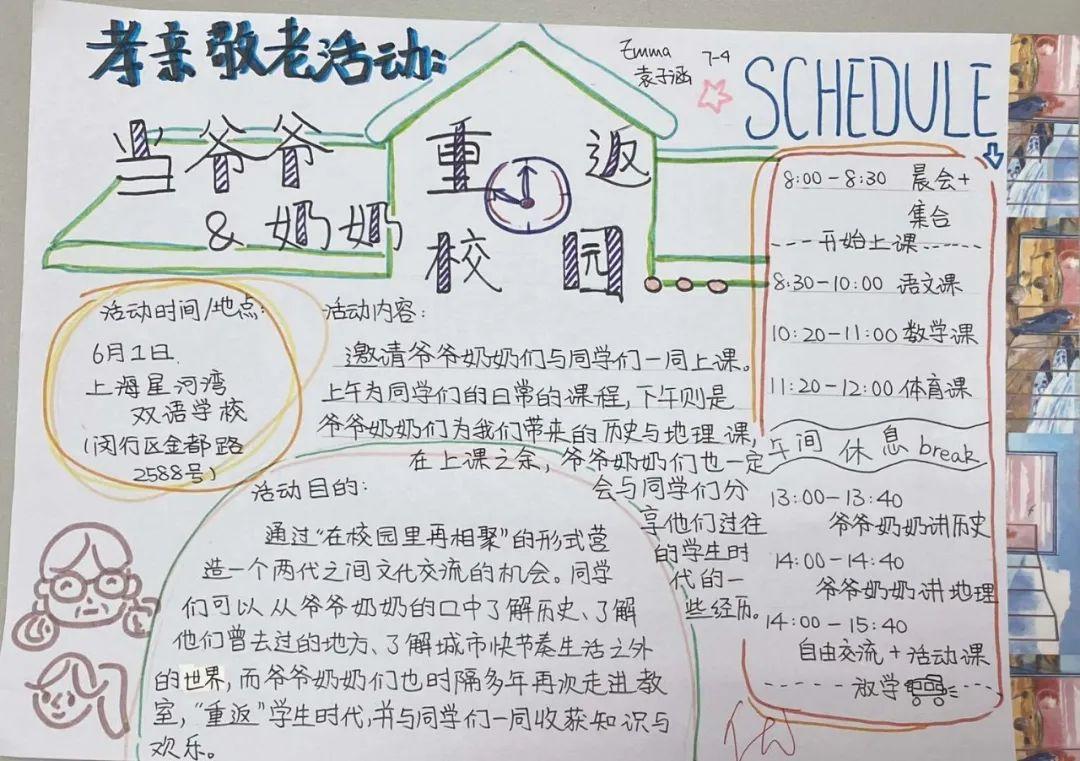 孝亲敬老活动:
当爷爷
& 奶奶
重返
校园
Emma 7-4
袁子涵
SCHEDULE
8:00-8:30 晨会+
集合
----开始上课----
8:30-10:00 语文课
10:20-11:00 数学课
11:20-12:00 体育课
午间休息 break
13:00-13:40
爷爷奶奶讲历史
14:00-14:40
爷爷奶奶讲地理
14:00-15:40
自由交流+活动课
-----放学
活动时间/地点:
6月1日.
上海星河湾
双语学校
(闵行区金都路
2588号)
活动内容:
邀请爷爷奶奶们与同学们一同上课。
上午为同学们的日常的课程,下午则是
爷爷奶奶们为我们带来的历史与地理课,
在上课之余,爷爷奶奶们也一定
会与同学们分
享他们过往
的学生时
代的一
些经历。
活动目的:
通过“在校园里再相聚”的形式营
造一个两代之间文化交流的机会。同学
们可以从爷爷奶奶的口中了解历史、了解
他们曾去过的地方、了解城市快节奏生活之外
的世界,而爷爷奶奶们也时隔多年再次走进教
室,“重返”学生时代,并与同学们一同收获知识与
欢乐。